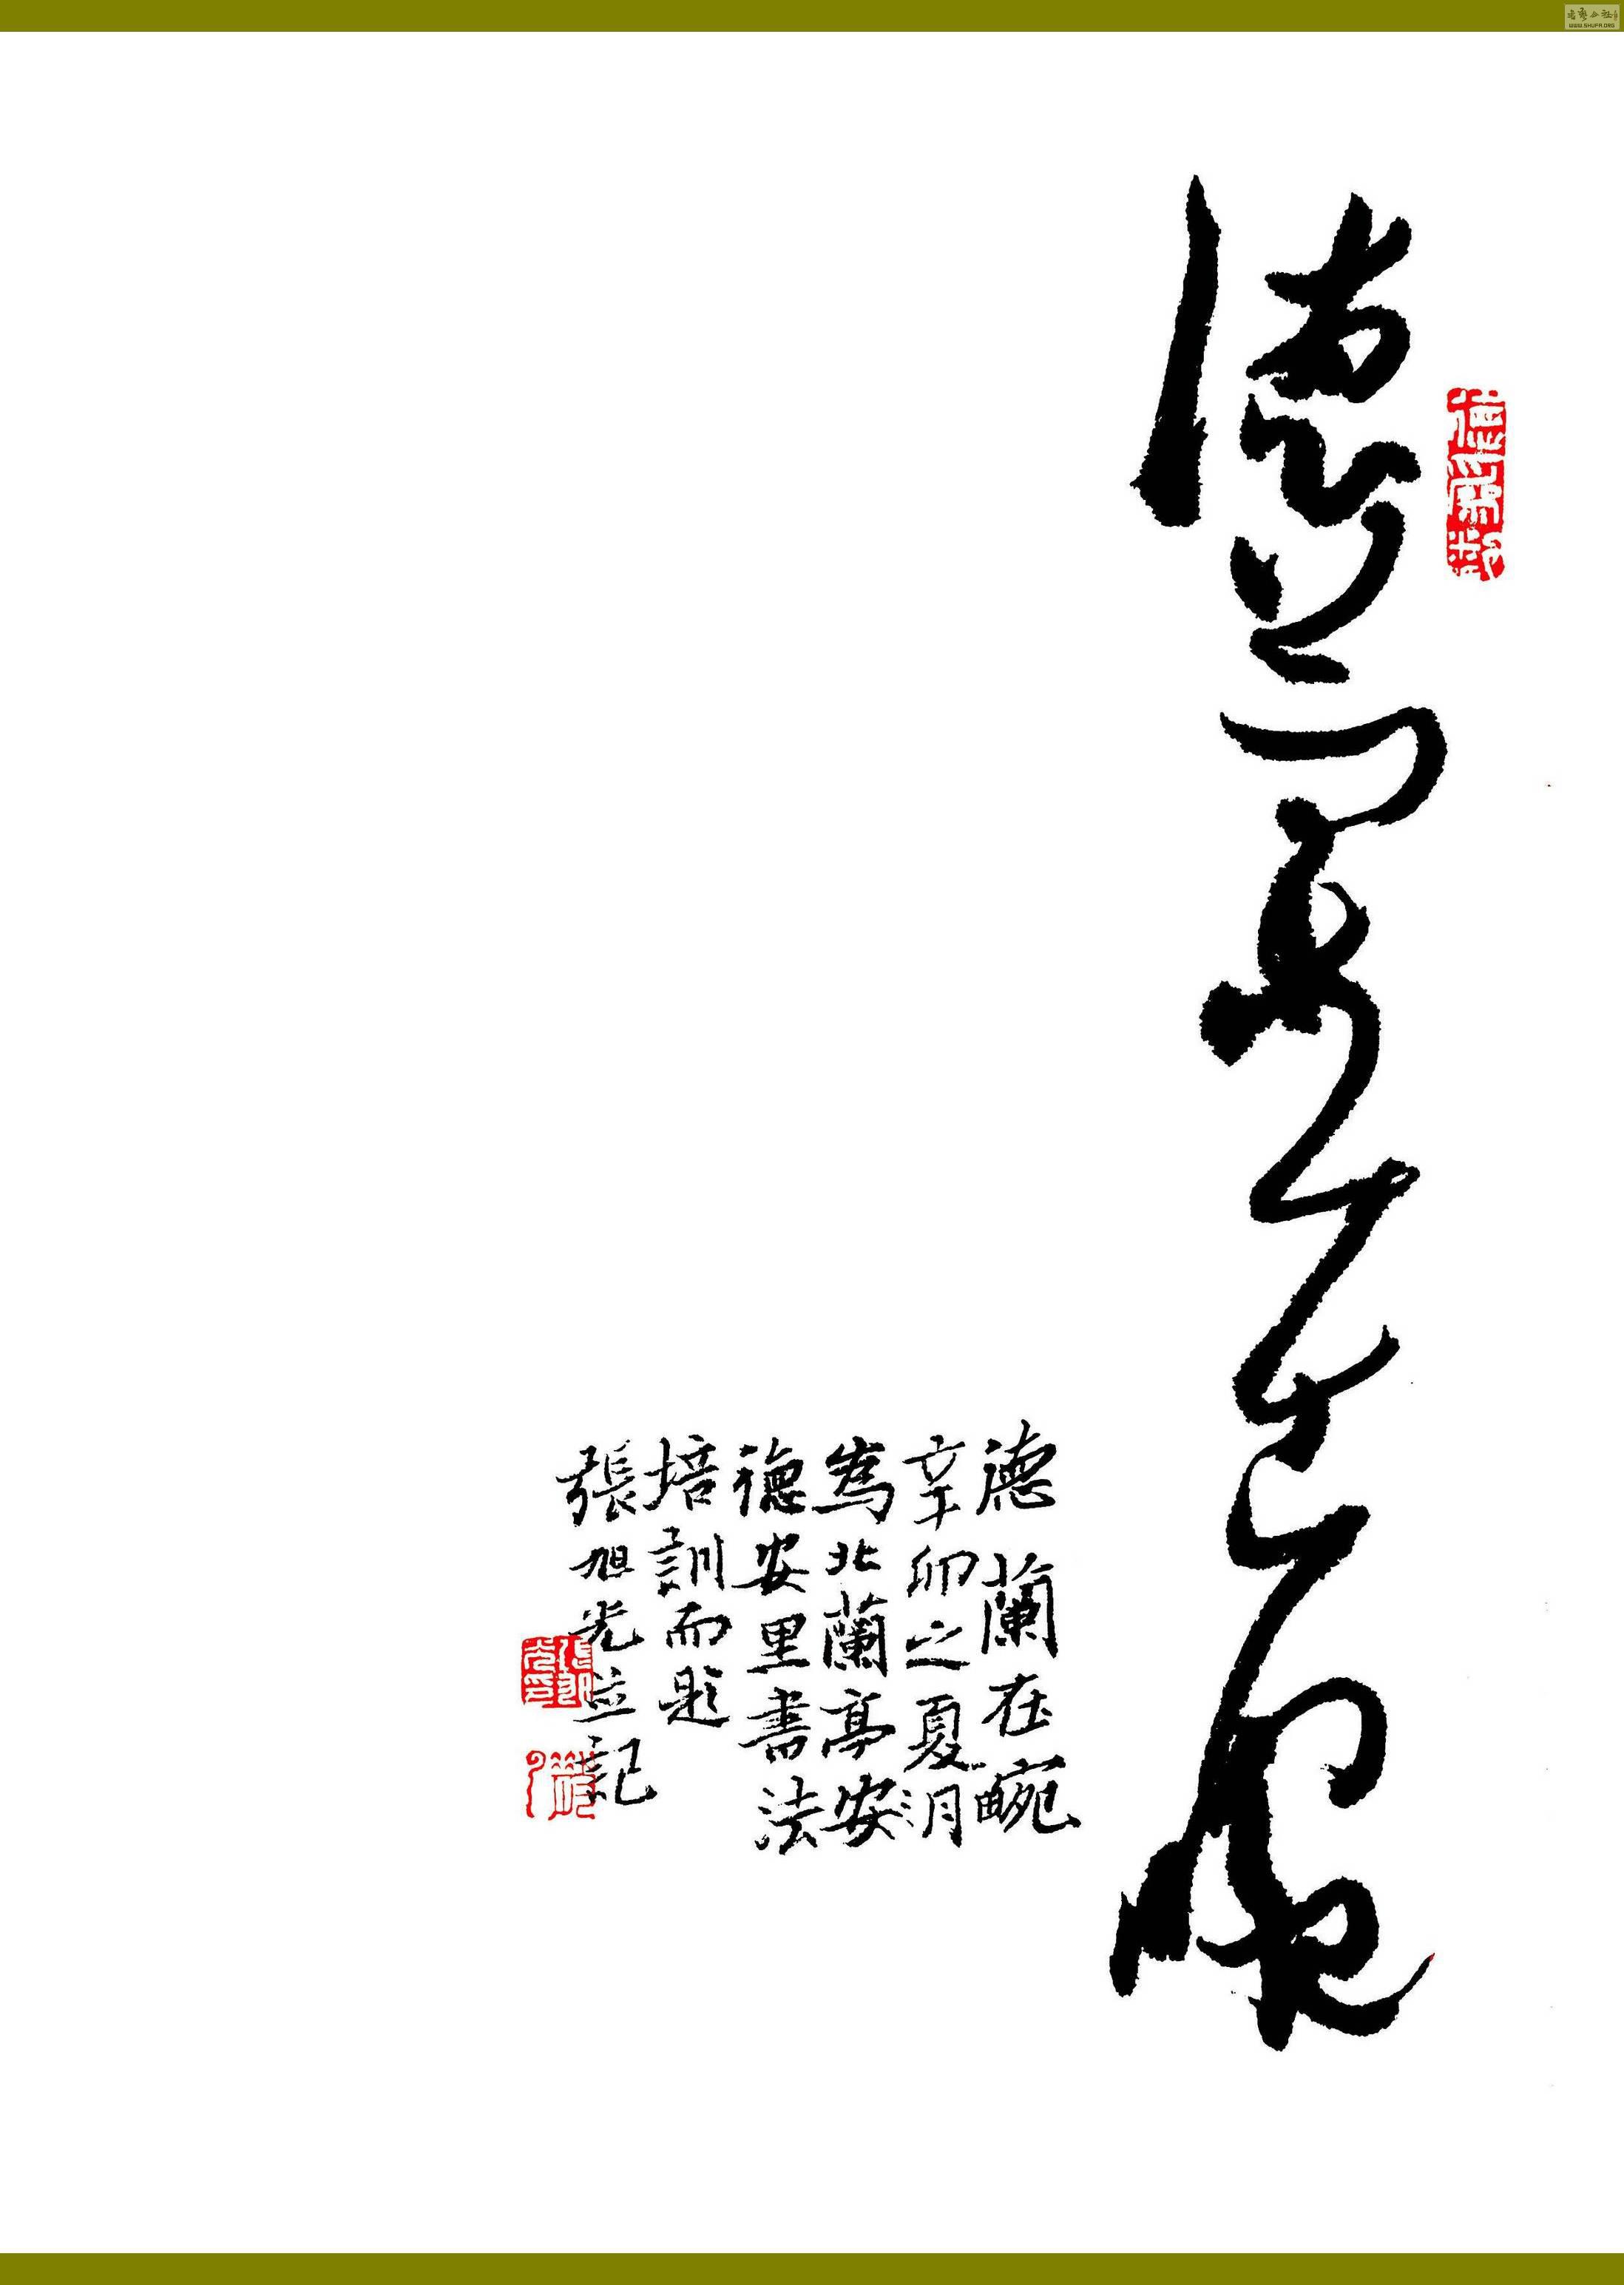 德蘭在畹
德蘭在畹
辛卯之夏月
為北蘭亭安
德安里書法
培訓而題
張旭光並記
WWW.SHUFA.ORG